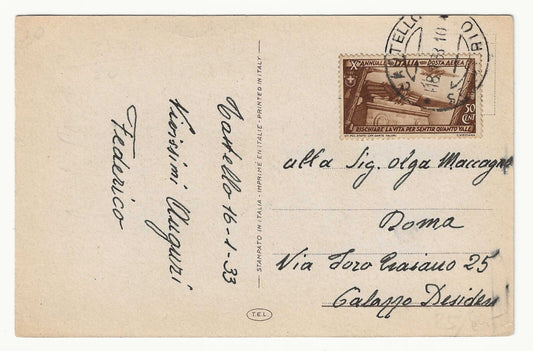 Castello 16-1-33
Vivissimi Auguri
Federico
STAMPATO IN ITALIA - IMPRIMÉ EN ITALIE - PRINTED IN ITALY
T.E.L.
Xº ANNUALE ITALIA POSTA AEREA
50
CENT
RISCHIARE LA VITA PER SENTIR QUANTO VALE
alla Sig. Olga Maccagno
Roma
Via Foro Traiano 25
Palazzo Desideri